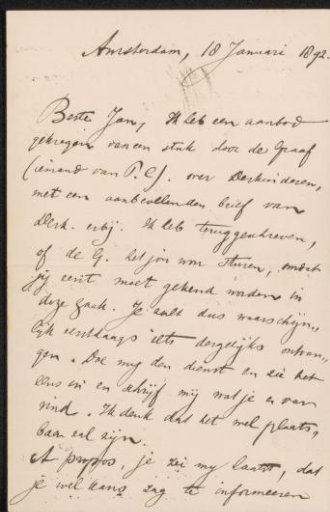 Amsterdam, 18 Januari 1892.
Beste Jan, Ik heb een aanbod
gekregen van een stuk door de Graaf
(iemand van P.C.) over Derkinderen,
met een aanbevelenden brief van
Derk. erbij. Ik heb teruggeschreven,
of de G. het jou won sturen, omdat
jij eerst moet gekend worden in
deze zaak. Je zult dus waarschijn„
lijk eerstdaags iets dergelijks ontvan„
gen. Doe my den dienst en zie het
eens in en schrijf mij wat je er van
vind. Ik denk dat het wel plaats„
baar zal zijn.
A propos, je zei my laatst, dat
je wel kans zag te informeeren